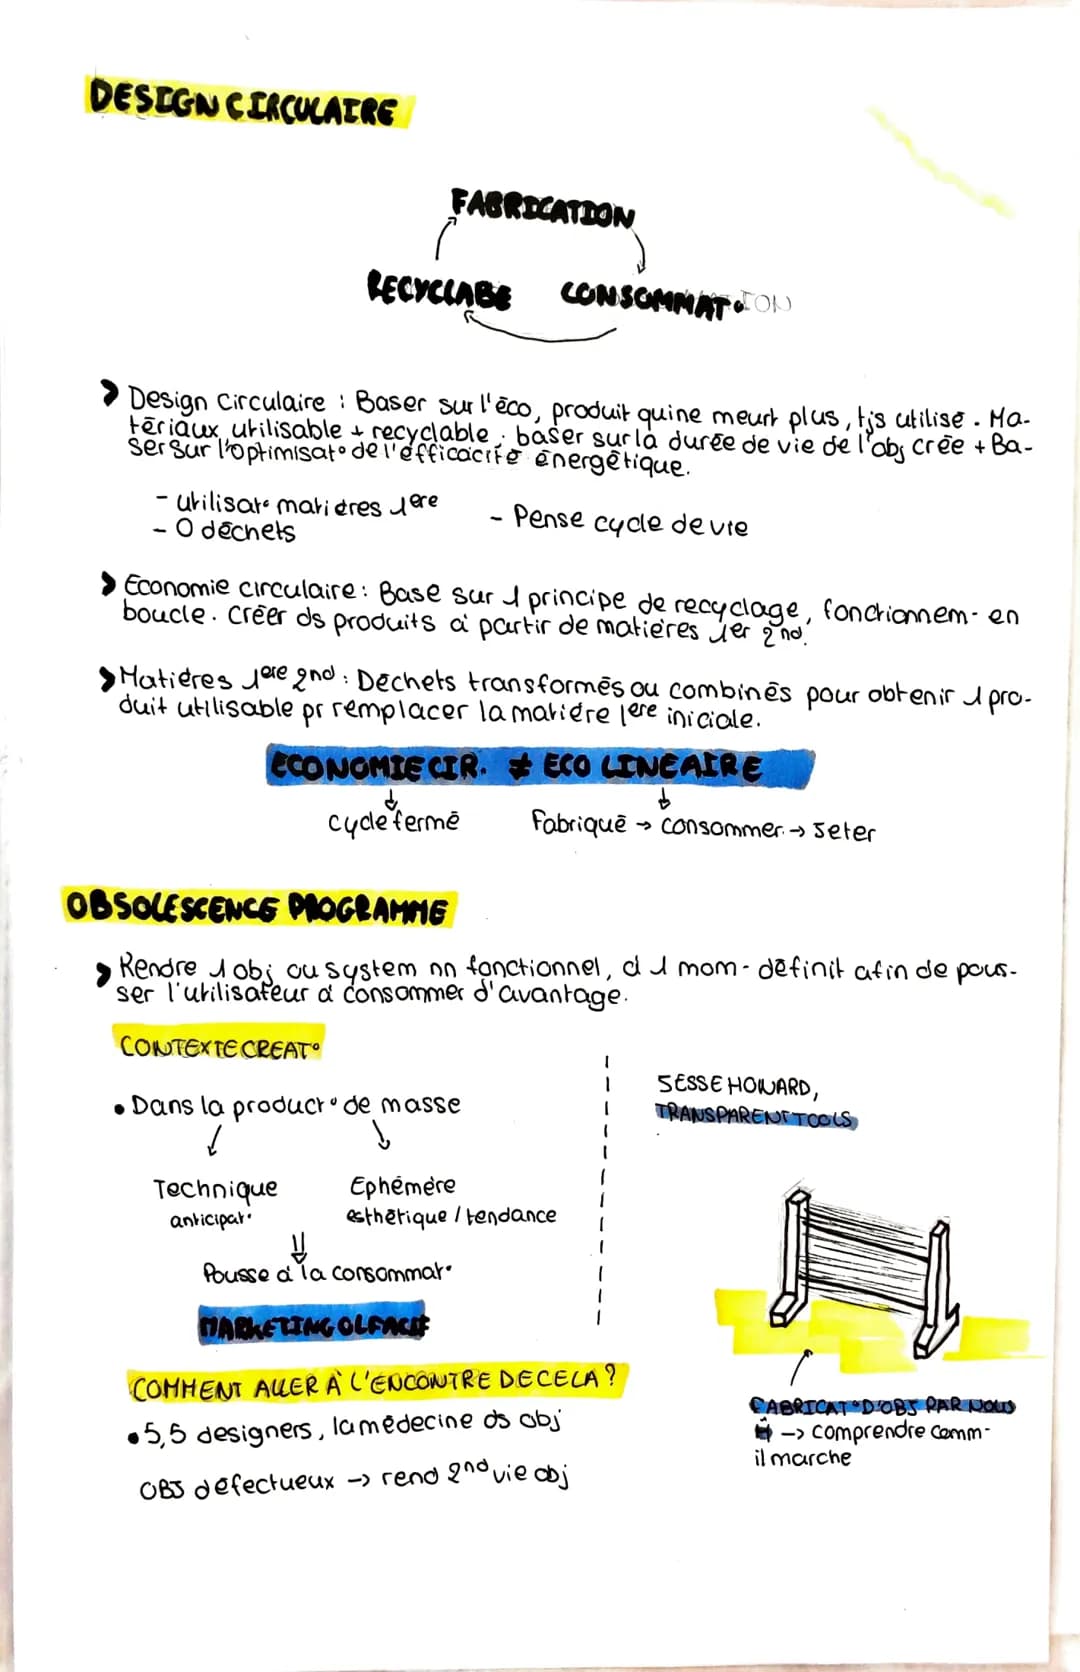 DESIGN CIRCULAIRE
FABRICATION
RECYCLABE CONSOMMAT°ION
Design Circulaire : Baser sur l'éco, produit qui ne meurt plus, tjs utilisé. Ma-
tériaux utilisable + recyclable. baser sur la durée de vie de l'obj crée + Ba-
ser sur l'optimisat° de l'efficacité énergétique.
- utilisat° matières 1ère
- Pense cycle de vie
- 0 déchets
Economie circulaire : Base sur 1 principe de recyclage, fonctionnem- en
boucle. Créer ds produits à partir de matières 1er 2nd.
Matières 1ère 2nd : Déchets transformés ou combinés pour obtenir 1 pro-
duit utilisable pr remplacer la matière 1ere iniciale.
ECONOMIE CIR. ≠ ECO LINEAIRE
cycle fermé Fabriqué → consommer → Jeter
OBSOLESCENCE PROGRAMME
Rendre 1 obj ou system nn fonctionnel, à 1 mom- définit afin de pous-
ser l'utilisateur à consommer d'avantage.
CONTEXTE CREAT°
• Dans la product° de masse
Technique Ephémère
anticipat° esthétique / tendance
Pousse à la consommat°
MARKETING OLFACTIF
COMMENT ALLER À L'ENCONTRE DE CELA ?
• 5,5 designers, la médecine ds obj
OBJ défectueux -> rend 2nd vie obj
JESSE HOWARD,
TRANSPARENT TOOLS
FABRICAT° D'OBJ PAR NOUS
-> comprendre comm-
il marche